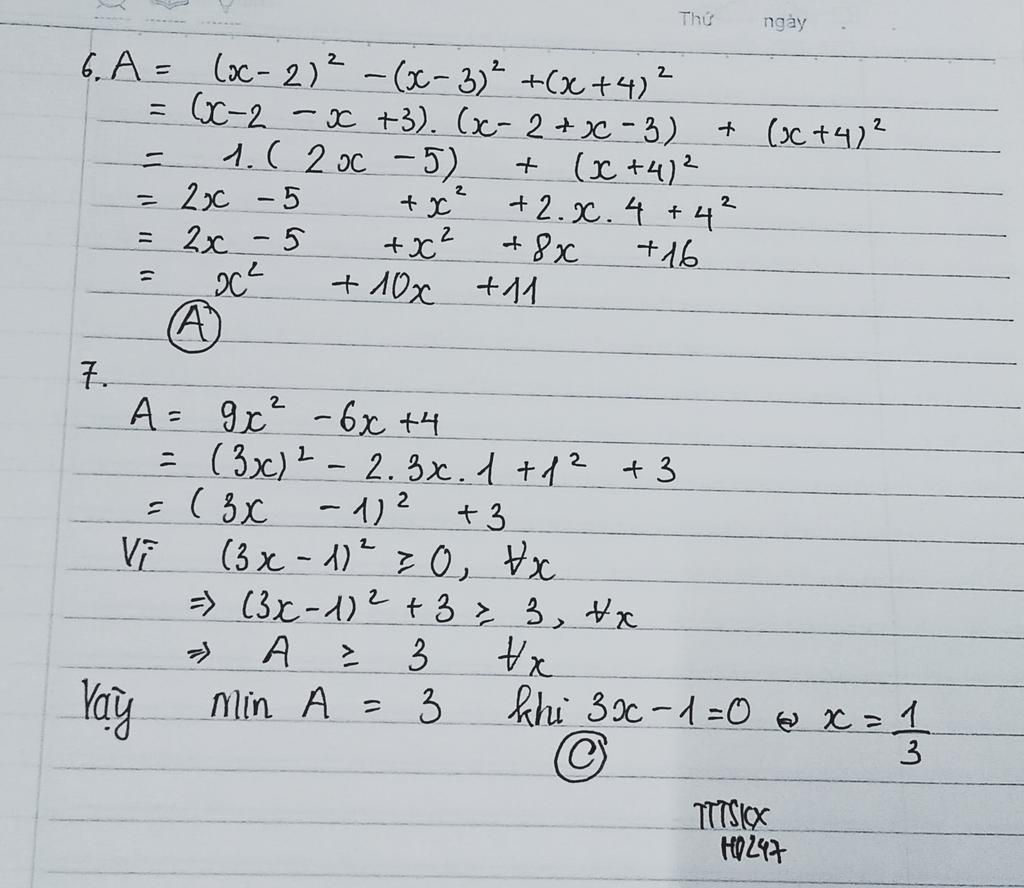 Thứ ngày
6. A = (x - 2)² - (x - 3)² + (x + 4)²
= (x - 2 - x + 3). (x - 2 + x - 3) + (x + 4)²
= 1. ( 2x - 5) + (x + 4)²
= 2x - 5 + x² + 2. x. 4 + 4²
= 2x - 5 + x² + 8x + 16
= x² + 10x + 11
A
7.
A = 9x² - 6x + 4
= (3x)² - 2. 3x. 1 + 1² + 3
= ( 3x - 1)² + 3
Vì (3x - 1)² ≥ 0, ∀x
⇒ (3x - 1)² + 3 ≥ 3, ∀x
⇒ A ≥ 3 ∀x
Vậy min A = 3 khi 3x - 1 = 0 ⇔ x = 1/3
C